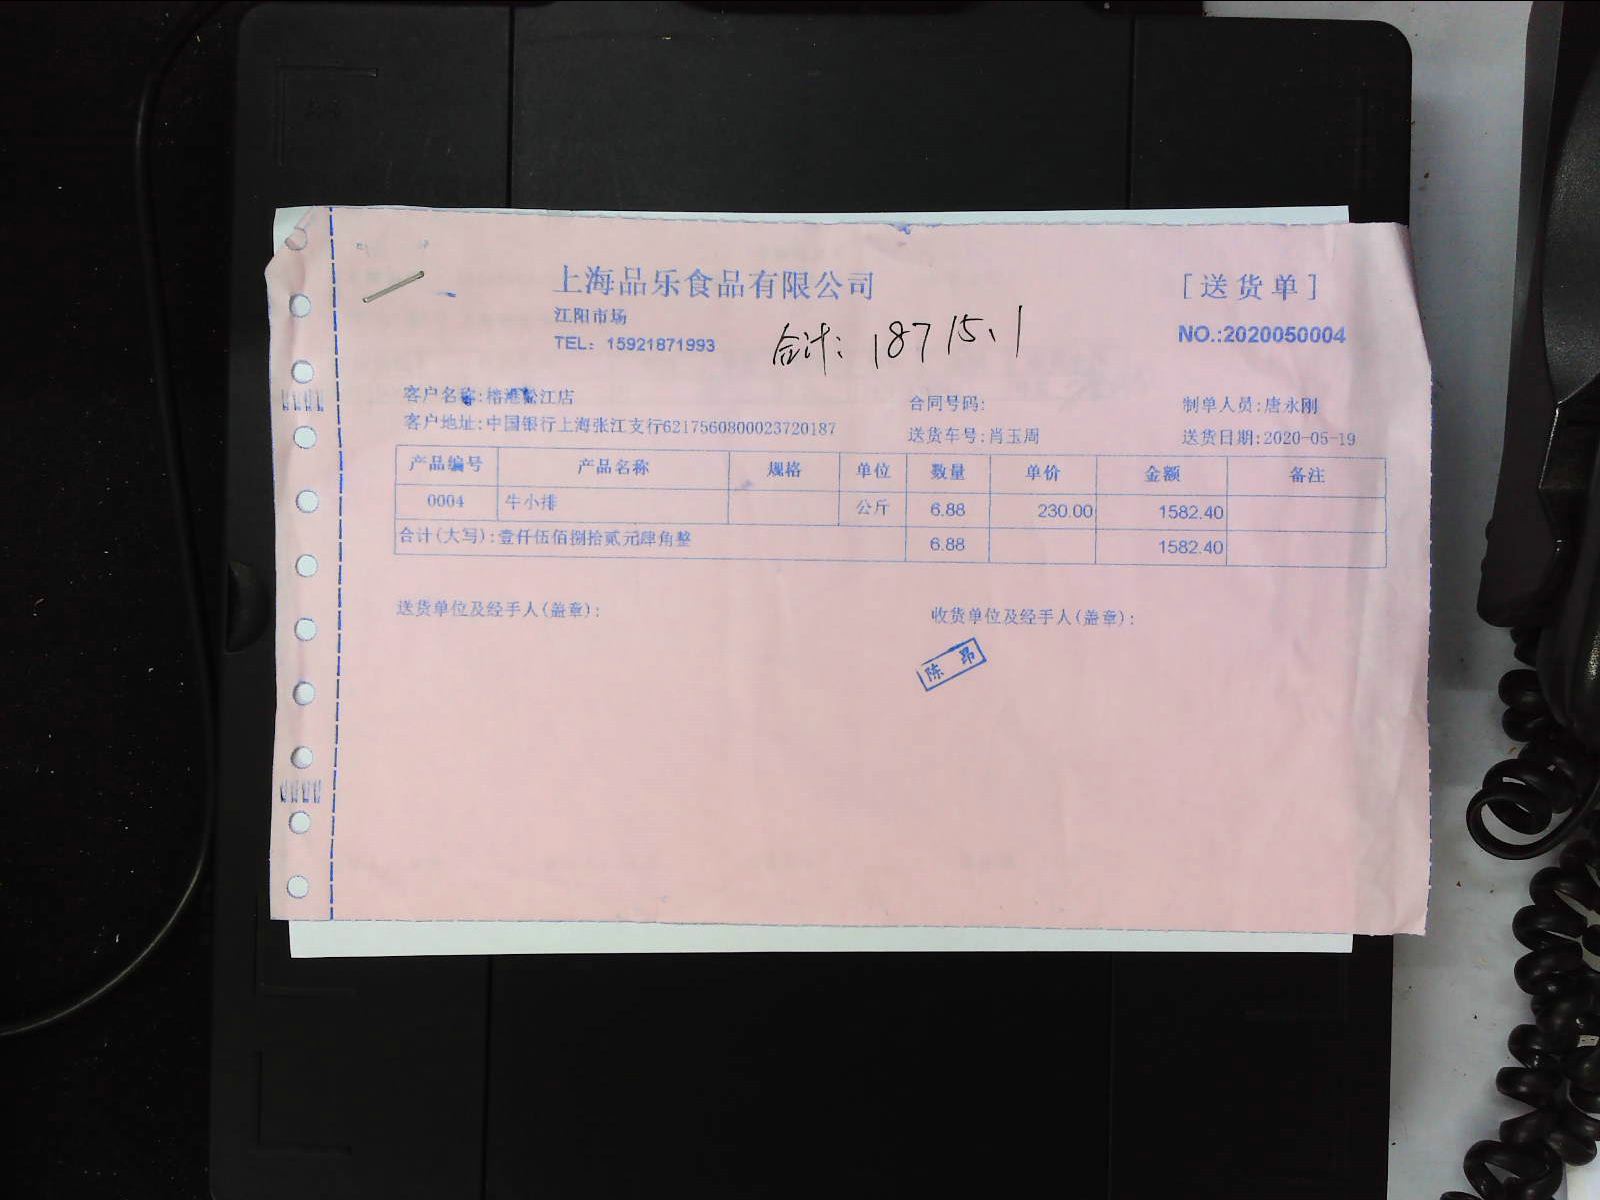 上海品乐食品有限公司
[送货单]
江阳市场
TEL: 15921871993
合计: 18715.1
NO.:2020050004
客户名称:榕港松江店
合同号码:
制单人员:唐永刚
客户地址:中国银行上海张江支行6217560800023720187
送货车号:肖玉周
送货日期:2020-05-19
产品编号 产品名称 规格 单位 数量 单价 金额 备注
0004 牛小排 公斤 6.88 230.00 1582.40
合计(大写):壹仟伍佰捌拾贰元肆角整 6.88 1582.40
送货单位及经手人(盖章):
收货单位及经手人(盖章):
陈昂